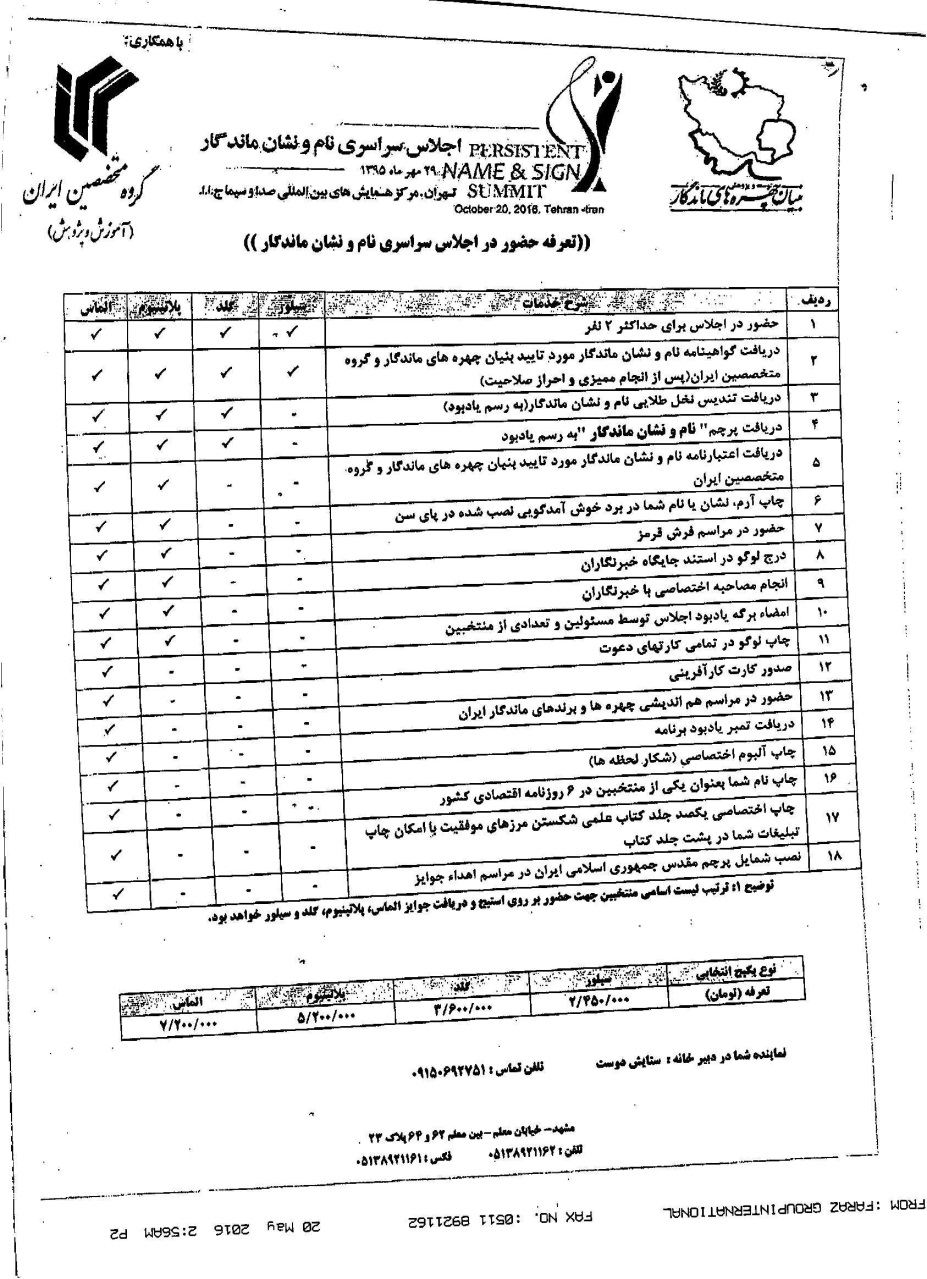 با همکاری:
گروه متخصصین ایران
(آموزش و پژوهش)
PERSISTENT
NAME & SIGN
SUMMIT
اجلاس سراسری نام و نشان ماندگار
۲۹ مهر ماه ۱۳۹۵
تهران، مرکز همایش های بین المللی صدا و سیما ج.ا.ا.
October 20, 2016, Tehran -Iran
بنیان چهره های ماندگار
((تعرفه حضور در اجلاس سراسری نام و نشان ماندگار ))
ردیف شرح خدمات سیلور گلد پلاتینیوم الماس
۱ حضور در اجلاس برای حداکثر ۲ نفر ✓ ✓ ✓ ✓
۲ دریافت گواهینامه نام و نشان ماندگار مورد تایید بنیان چهره های ماندگار و گروه
متخصصین ایران(پس از انجام ممیزی و احراز صلاحیت) ✓ ✓ ✓ ✓
۳ دریافت تندیس نخل طلایی نام و نشان ماندگار(به رسم یادبود) - ✓ ✓ ✓
۴ دریافت پرچم" نام و نشان ماندگار "به رسم یادبود - ✓ ✓ ✓
۵ دریافت اعتبارنامه نام و نشان ماندگار مورد تایید بنیان چهره های ماندگار و گروه
متخصصین ایران - - ✓ ✓
۶ چاپ آرم، نشان یا نام شما در برد خوش آمدگویی نصب شده در پای سن - - ✓ ✓
۷ حضور در مراسم فرش قرمز - - ✓ ✓
۸ درج لوگو در استند جایگاه خبرنگاران - - ✓ ✓
۹ انجام مصاحبه اختصاصی با خبرنگاران - - ✓ ✓
۱۰ امضاء برگه یادبود اجلاس توسط مسئولین و تعدادی از منتخبین - - ✓ ✓
۱۱ چاپ لوگو در تمامی کارتهای دعوت - - ✓ ✓
۱۲ صدور کارت کارآفرینی - - - ✓
۱۳ حضور در مراسم هم اندیشی چهره ها و برندهای ماندگار ایران - - - ✓
۱۴ دریافت تمبر یادبود برنامه - - - ✓
۱۵ چاپ آلبوم اختصاصی (شکار لحظه ها) - - - ✓
۱۶ چاپ نام شما بعنوان یکی از منتخبین در ۶ روزنامه اقتصادی کشور - - - ✓
۱۷ چاپ اختصاصی یکصد جلد کتاب علمی شکستن مرزهای موفقیت با امکان چاپ
تبلیغات شما در پشت جلد کتاب - - - ✓
۱۸ نصب شمایل پرچم مقدس جمهوری اسلامی ایران در مراسم اهداء جوایز - - - ✓
توضیح ۱: ترتیب لیست اسامی منتخبین جهت حضور بر روی استیج و دریافت جوایز الماس، پلاتینیوم، گلد و سیلور خواهد بود.
نوع پکیج انتخابی سیلور گلد پلاتینیوم الماس
تعرفه (تومان) ۲/۴۵۰/۰۰۰ ۳/۶۰۰/۰۰۰ ۵/۲۰۰/۰۰۰ ۷/۲۰۰/۰۰۰
نماینده شما در دبیر خانه : ستایش دوست تلفن تماس : ۰۹۱۵۰۶۹۲۷۵۱
مشهد- خیابان معلم -بین معلم ۶۲ و ۶۴ پلاک ۲۳
تلفن : ۰۵۱۳۸۹۲۱۱۶۲ فکس : ۰۵۱۳۸۹۲۱۱۶۱
FROM :FARAZ GROUPINTERNATIONAL FAX NO. :0511 8921162 20 May 2016 2:56AM P2